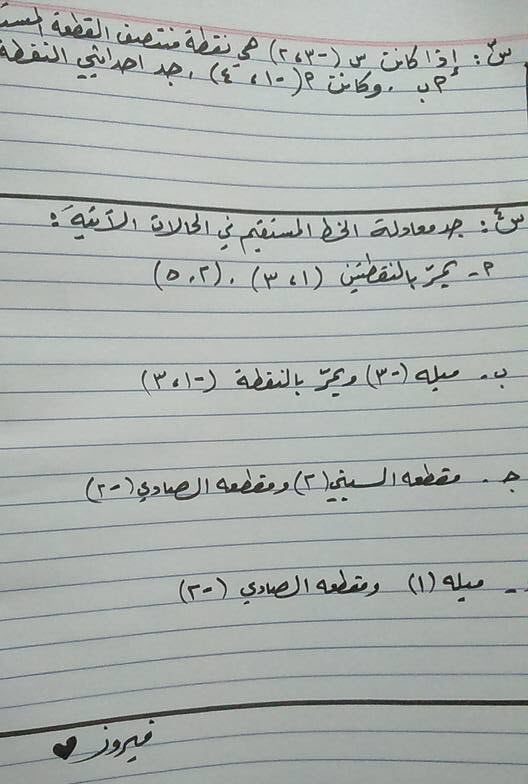 س٣: إذا كانت س (-٣، ٢) هي نقطة منتصف القطعة
أب . وكانت أ (-١، ٤) ، جد احداثيي النقطة
س٤: جد معادلة الخط المستقيم في الحالات الآتية:
أ- يمرّ بالنقطتين (١، ٣) ، (٢، ٥)
ب- ميله (-٣) ويمرّ بالنقطة (-١، ٣)
ج- مقطعه السيني (٢) ومقطعه الصادي (-٢)
- ميله (١) ومقطعه الصادي (-٢)
فيروز ♥